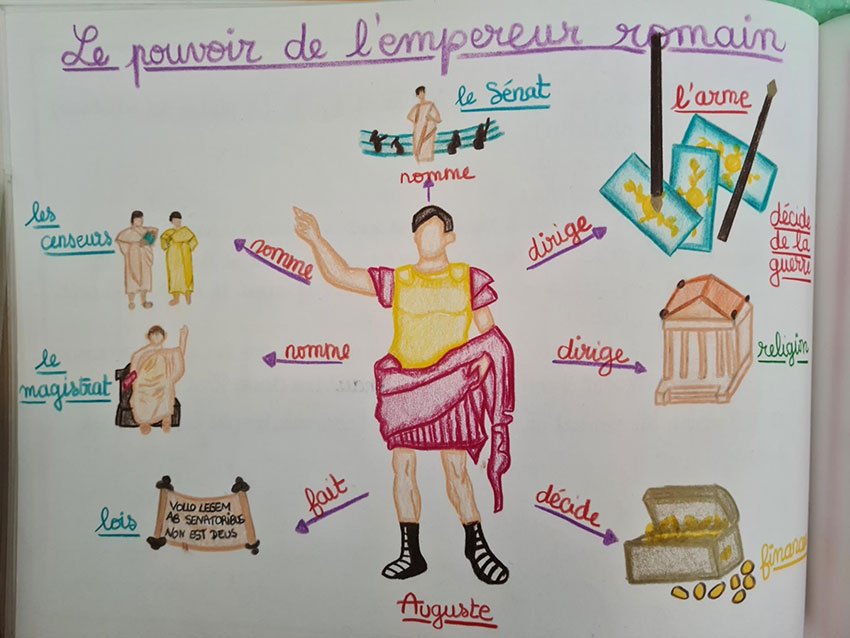 Le pouvoir de l'empereur romain
le Sénat
nomme
l'arme
décide
de la
guerre
dirige
les
censeurs
nomme
le
magistrat
nomme
dirige
religion
lois
VOLLO LEGEM
AB SENATORIBUS
NON EST DEUS
fait
décide
Auguste